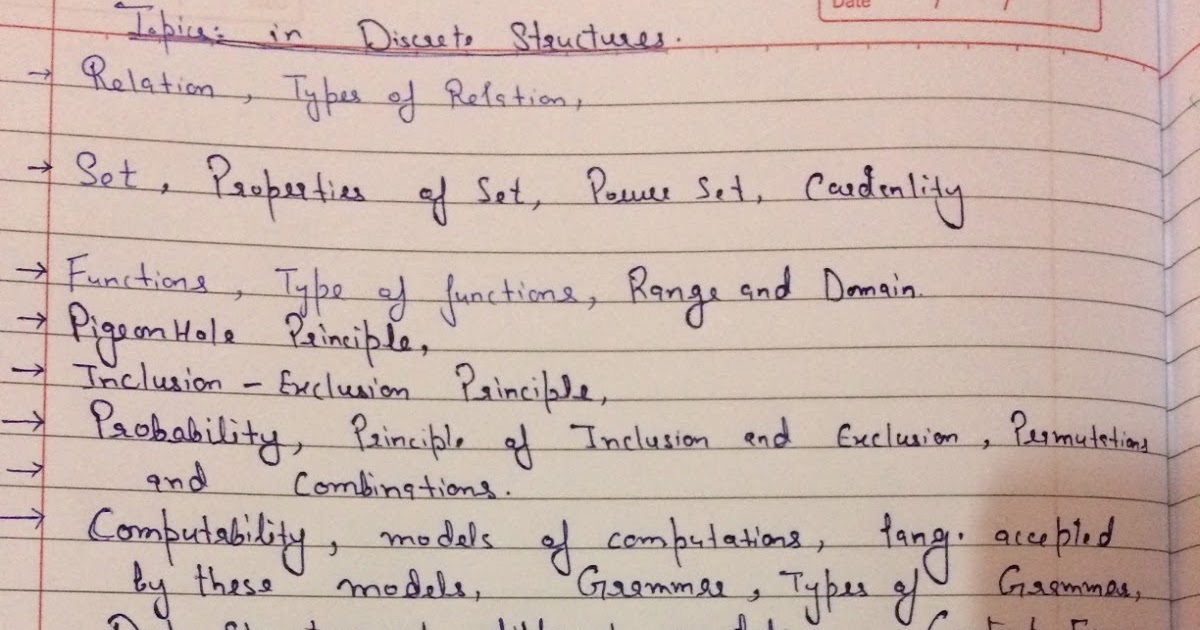 Date / /
Topics: in Discrete Structures.
→ Relation, Types of Relation,
→ Set, Properties of Set, Power Set, Cardenlity
→ Functions, Type of functions, Range and Domain.
→ Pigeon Hole Principle,
→ Inclusion - Exclusion Principle,
→ Probability, Principle of Inclusion and Exclusion, Permutations
→ and Combinations.
→ Computability, models of computations, lang. accepted
by these models, Grammar, Types of Grammar,